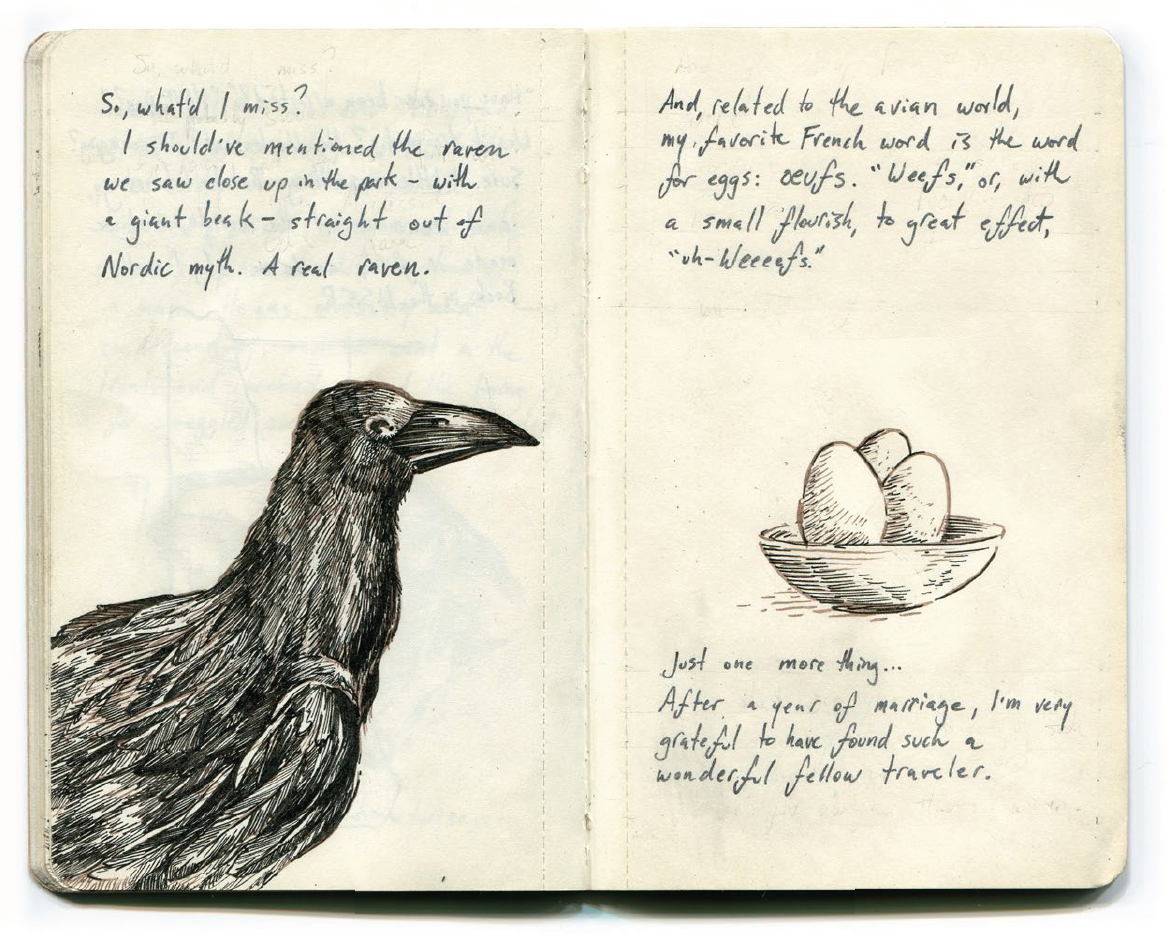 So, what'd I miss?
I should've mentioned the raven
we saw close up in the park – with
a giant beak – straight out of
Nordic myth. A real raven.
And, related to the avian world,
my favorite French word is the word
for eggs: oeufs. "Weefs," or, with
a small flourish, to great effect,
"uh-Weeeefs."
Just one more thing...
After a year of marriage, I'm very
grateful to have found such a
wonderful fellow traveler.